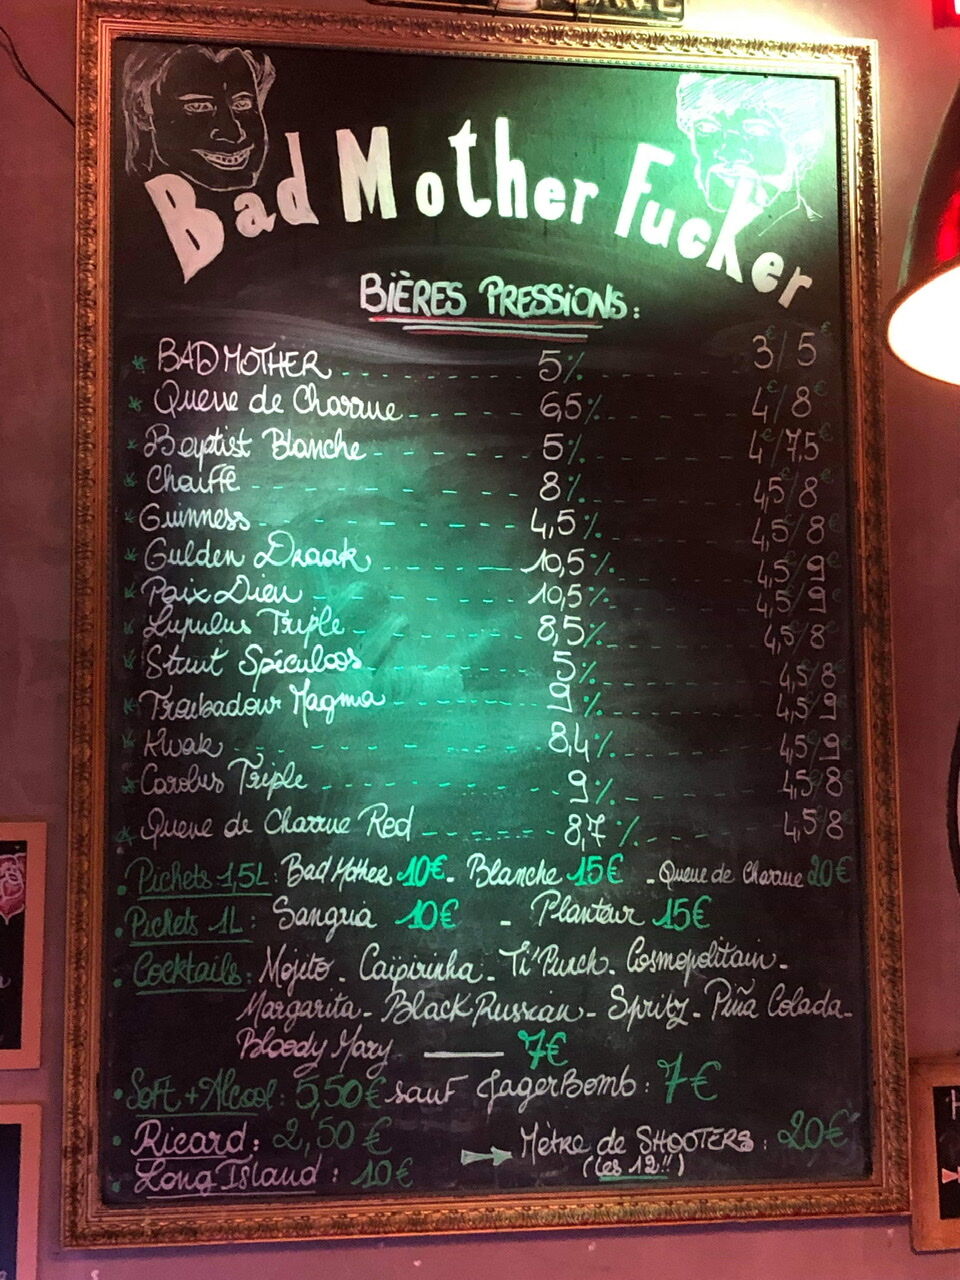 Bad Mother Fucker
BIÈRES PRESSIONS:
* BAD MOTHER 5% 3€/5€
* Queue de Charrue 6,5% 4€/8€
* Baptist Blanche 5% 4€/7,5€
* Chouffe 8% 4,5/8€
* Guinness 4,5% 4,5/8€
* Gulden Draak 10,5% 4,5/9€
* Paix Dieu 10,5% 4,5/9€
* Lupulus Triple 8,5% 4,5/8€
* Stuut Spéculoos 5% 4,5/8€
* Troubadour Magma 9% 4,5/9€
* Kwak 8,4% 4,5/9€
* Carolus Triple 9% 4,5/8€
* Queue de Charrue Red 8,7% 4,5/8€
. Pichets 1,5L: Bad Mother 10€ - Blanche 15€ - Queue de Charrue 20€
. Pichets 1L: Sangria 10€ - Planteur 15€
. Cocktails: Mojito - Caïpirinha - Ti'Punch - Cosmopolitain -
Margarita - Black Russian - Spritz - Piña Colada -
Bloody Mary — 7€
. Soft + Alcool: 5,50€ sauf JagerBomb: 7€
. Ricard: 2,50€ → Mètre de SHOOTERS: 20€
(les 12!!)
. Long Island: 10€